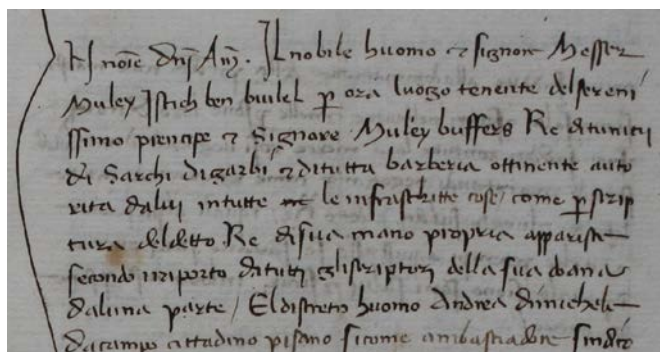 In noīe dnj Am̄. Il nobile huomo et signor Messer
Muley Isiech ben buulel p ora luogo tenente del sereni
ssimo prencipe et Signore Muley buffers Re di tunitj
di Sarchi di garbi et di tutta barberia ottinente auto
rita da lui in tutte le infrascritte cose / come p scrip
tura del detto Re di sua mano propria apparisce
secondo rapporto di tuttj gli scriptorj della sua doana
da luna parte / El discreto huomo Andrea di michele
da campo cittadino pisano sicome ambasciadore sindico